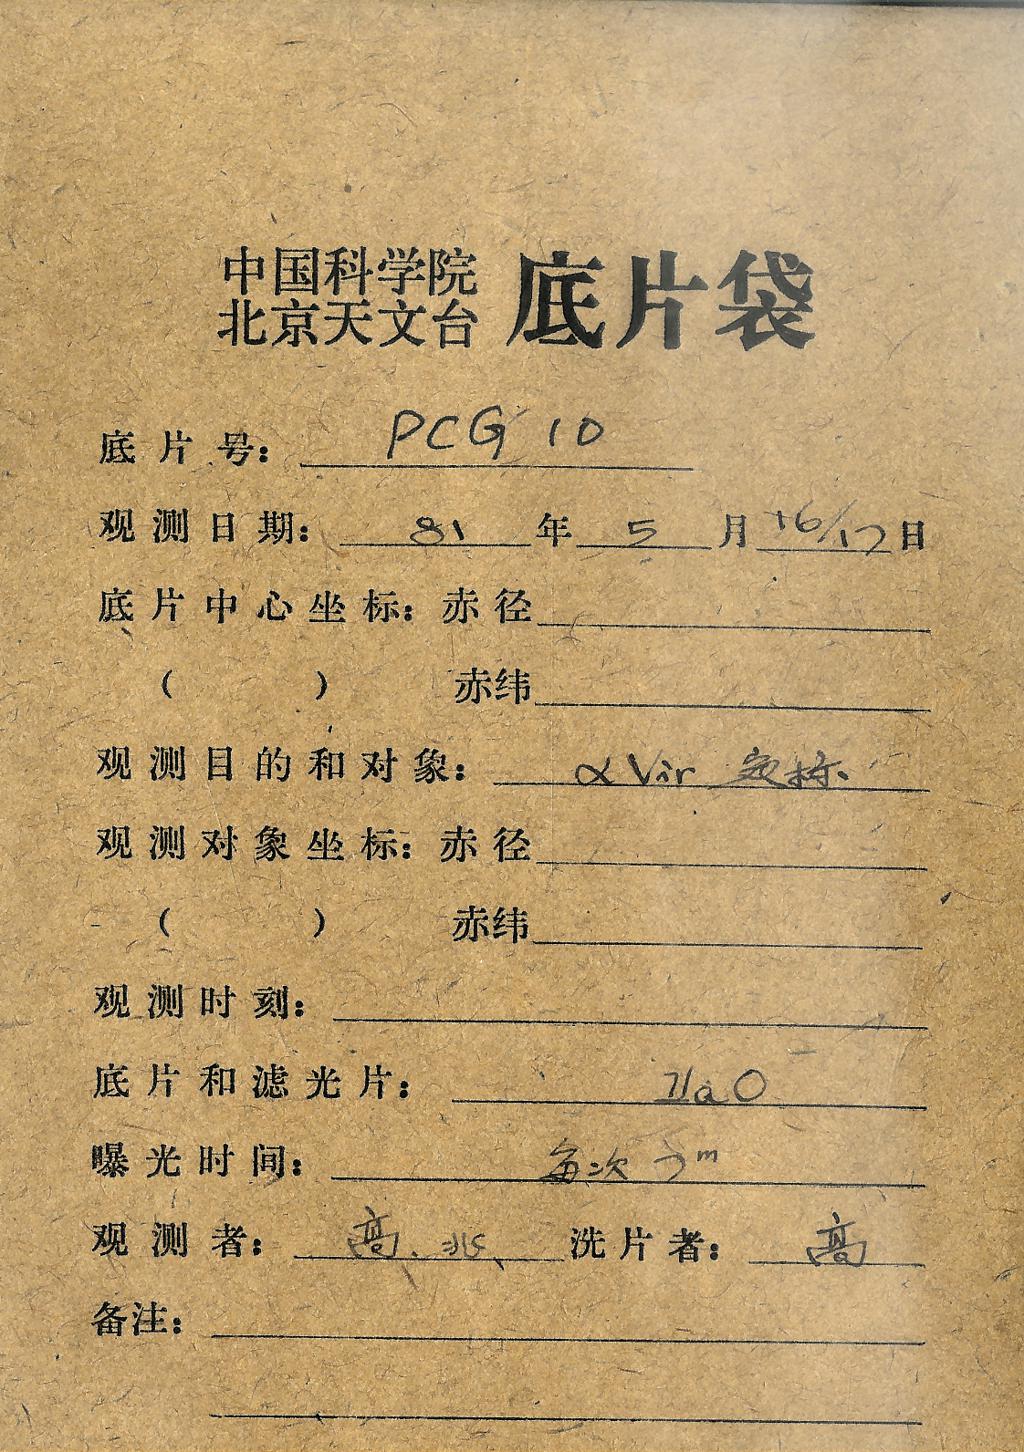 中国科学院
北京天文台 底片袋
底片号: PCG 10
观测日期: 81 年 5 月 16/17 日
底片中心坐标: 赤径
( ) 赤纬
观测目的和对象: α Vir 定标
观测对象坐标: 赤径
( ) 赤纬
观测时刻:
底片和滤光片: IIaO
曝光时间: 每次
观测者: 高. 洗片者: 高
备注: